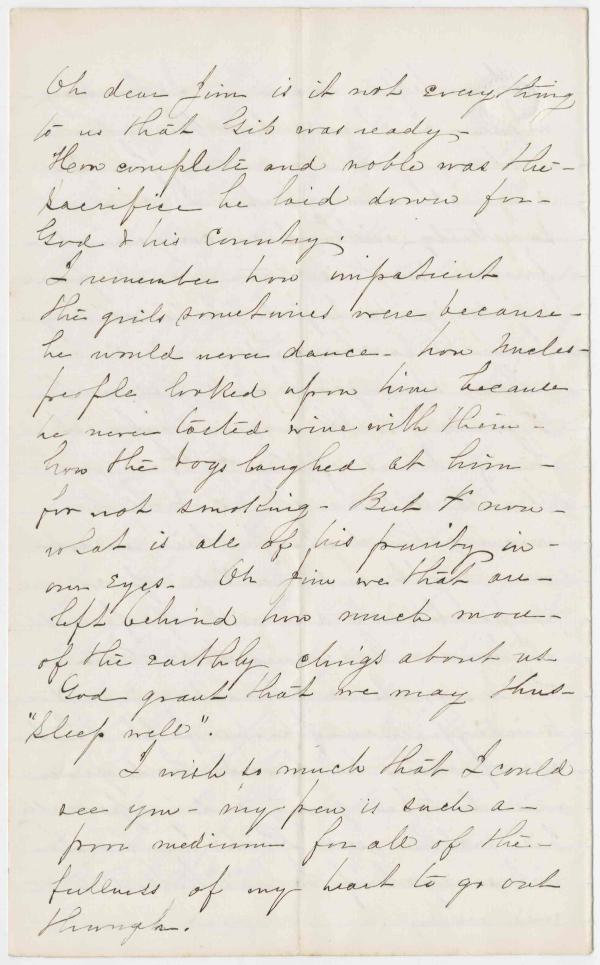 Oh dear Jim is it not everything
to us that Gib was ready –
How complete and noble was the –
sacrifice he laid down for –
God & his Country.
I remember how impatient
the girls sometimes were because –
he would never dance – how Uncles –
people looked upon him because
he never tasted wine with them –
how the boys laughed at him –
for not smoking – But now –
what is all of his purity in –
our eyes – Oh Jim we that are –
left behind how much more –
of the earthly clings about us
God grant that we may thus –
"Sleep well".
I wish so much that I could
see you – my pen is such a –
poor medium for all of the –
fullness of my heart to go out
through.